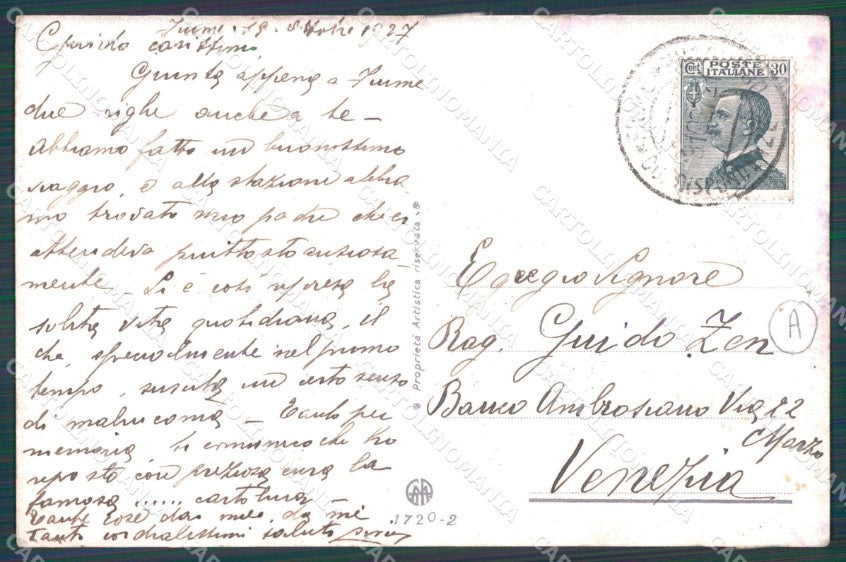 Fiume 19 Ottobre 1927
Guido carissimo
Giunta appena a Fiume
due righe anche a te –
Abbiamo fatto un buonissimo
viaggio, e alla stazione abbia
mo trovato mio padre che ci
attendeva piuttosto ansiosa-
mente – Si è così ripresa la
solita vita quotidiana, il
che specialmente nel primo
tempo, suscita un certo senso
di malinconia – Tanto per
memoria, ti comunico che ho
riposto con preziosa cura la
famosa ...... cartolina –
Tante cose dai miei, da me
tanti cordialissimi saluti
POSTE
ITALIANE
30
Egregio Signore
Rag. Guido Zen
Banco Ambrosiano Via 22
Marzo
Venezia
A
Proprietà Artistica riservata
1720-2
CARTOLINOMANIA